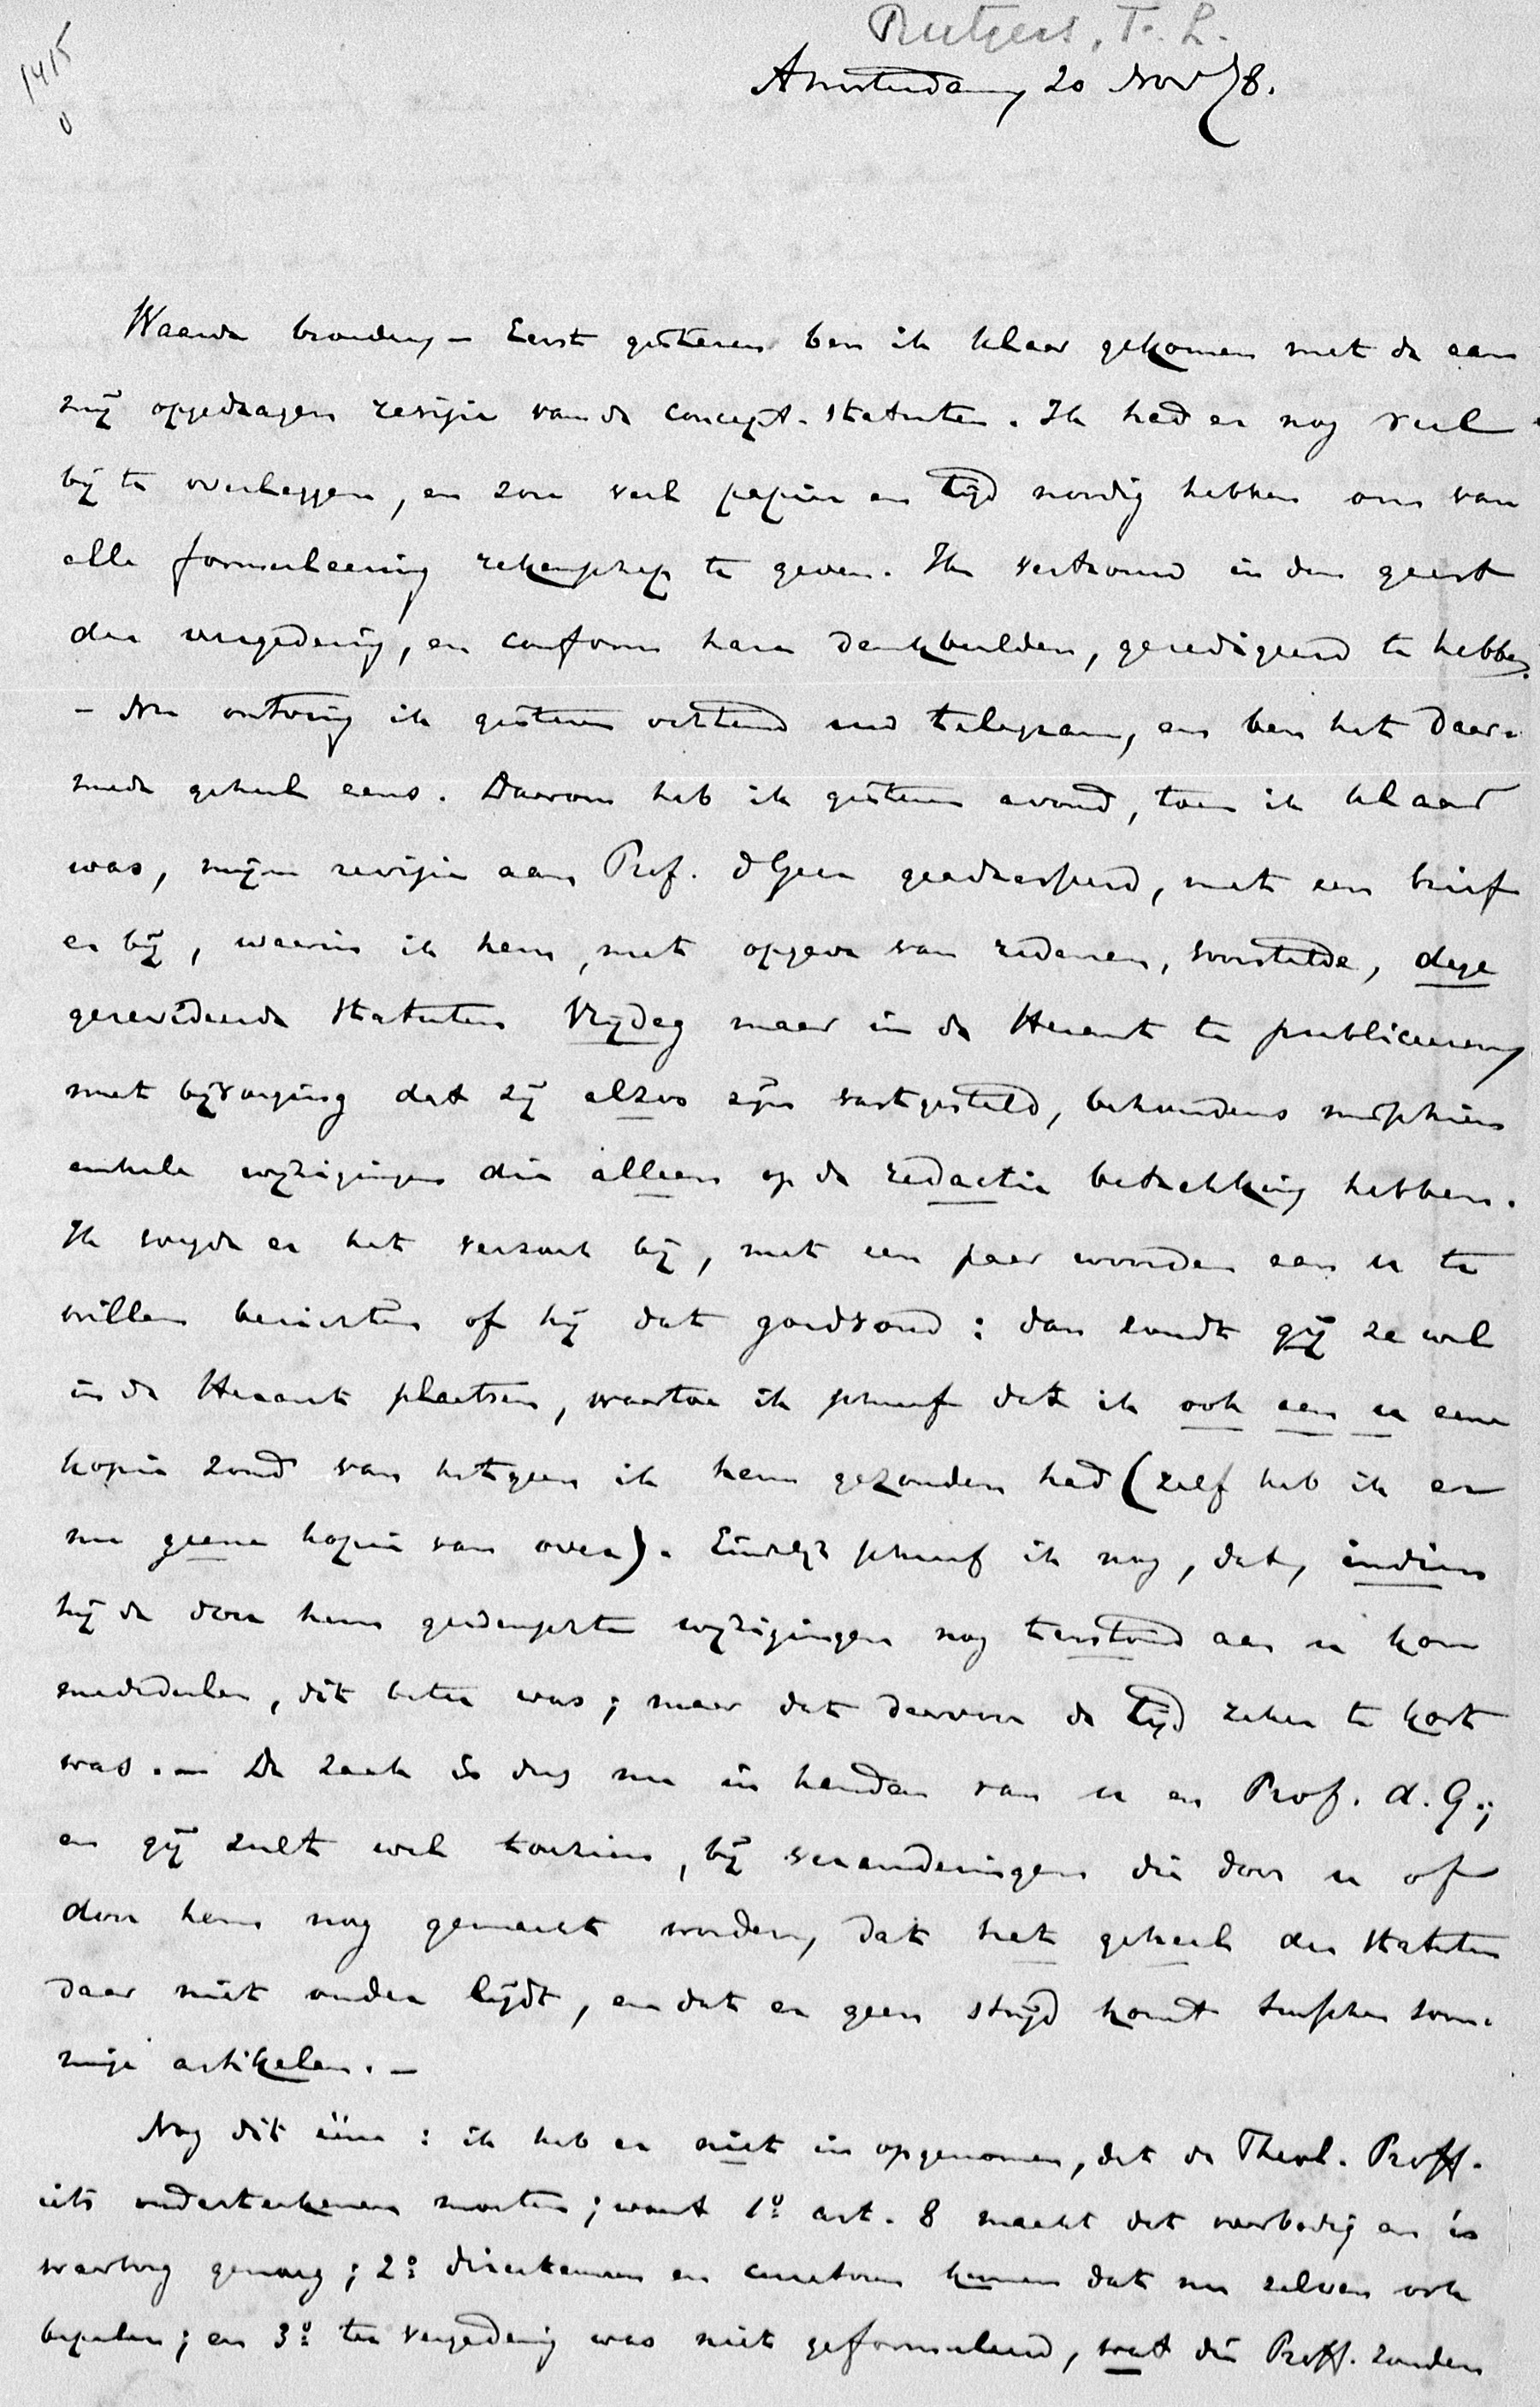 1415
Rutgers, F. L.
Amsterdam, 20 Nov 78.
Waarde broeder, – Eerst gisteren ben ik klaar gekomen met de aan
mij opgedragen revisie van de concept-statuten. Ik had er nog veel
bij te overleggen, en zou veel papier en tijd noodig hebben om van
alle formuleering rekenschap te geven. Ik vertrouw in den geest
der vergadering, en conform hare denkbeelden, geredigeerd te hebben.
– Nu ontving ik gisteren ochtend uw telegram, en ben het daar-
mede geheel eens. Daarom heb ik gisteren avond, toen ik klaar
was, mijne revisie aan Prof. d Geer geadresseerd, met een brief
er bij, waarin ik hem, met opgave van redenen, voorstelde, deze
gerevideerde statuten Vrijdag maar in de Heraut te publiceeren,
met bijvoeging dat zij alzoo zijn vastgesteld, behoudens misschien
enkele wijzigingen die alleen op de redactie betrekking hebben.
Ik voegde er het verzoek bij, met een paar woorden aan u te
willen berichten of hij dat goedvond: dan zoudt gij ze wel
in de Heraut plaatsen, waartoe ik schreef dat ik ook aan u eene
kopie zond van hetgeen ik hem gezonden had (zelf heb ik er
nu geene kopie van over). Eindelijk schreef ik nog, dat, indien
hij de door hem gewenschte wijzigingen nog terstond aan u kon
mededeelen, dit beter was; maar dat daarvoor de tijd zeker te kort
was. – De zaak is dus nu in handen van u en Prof. d. G.;
en gij zult wel toezien, bij veranderingen die door u of
door hem nog gemaakt worden, dat het geheel der statuten
daar niet onder lijdt, en dat er geen strijd komt tusschen som-
mige artikelen. –
Nog dit ééne: ik heb er niet in opgenomen, dat de Theol. Proff.
iets onderteekenen moeten; want 1o. art. 8 maakt dat overbodig en is
waarborg genoeg; 2o. directeuren en curatoren kunnen dat nu zelven ook
bepalen; en 3o. ter vergadering was niet geformuleerd, wat die Proff. zouden